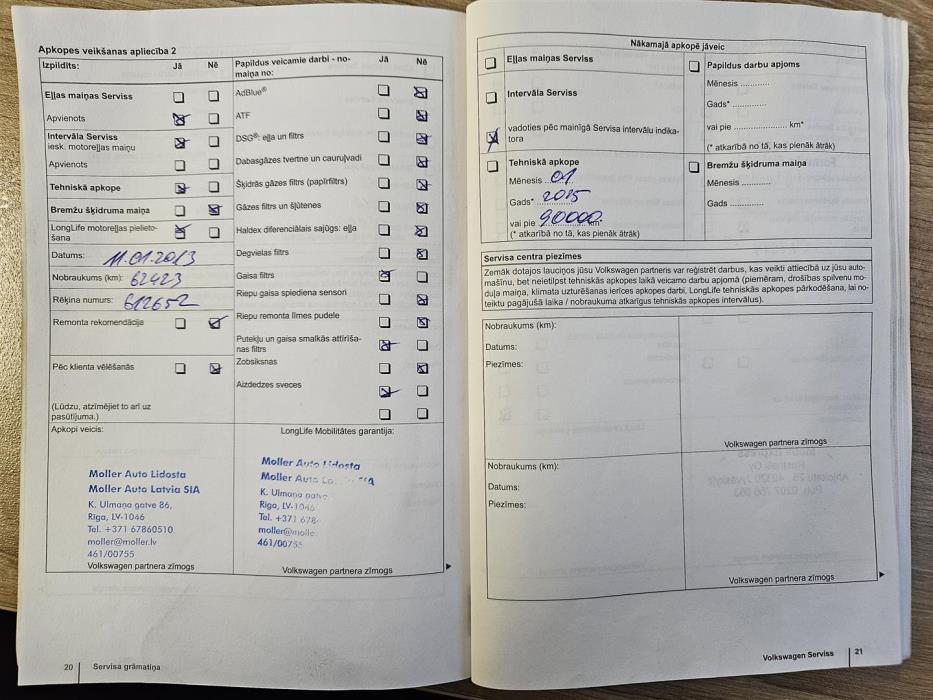 Apkopes veikšanas apliecība 2
Izpildīts: Jā Nē
Eļļas maiņas Serviss
Apvienots
Intervāla Serviss
iesk. motoreļļas maiņu
Apvienots
Tehniskā apkope
Bremžu šķidruma maiņa
LongLife motoreļļas pielieto-
šana
Datums: 11.01.2013
Nobraukums (km): 62423
Rēķina numurs: 612652
Remonta rekomendācija
Pēc klienta vēlēšanās
(Lūdzu, atzīmējiet to arī uz
pasūtījuma.)
Papildus veicamie darbi - no-
maiņa no: Jā Nē
AdBlue®
ATF
DSG®: eļļa un filtrs
Dabasgāzes tvertne un cauruļvadi
Šķidrās gāzes filtrs (papīrfiltrs)
Gāzes filtrs un šļūtenes
Haldex diferenciālais sajūgs: eļļa
Degvielas filtrs
Gaisa filtrs
Riepu gaisa spiediena sensori
Riepu remonta līmes pudele
Putekļu un gaisa smalkās attīrīša-
nas filtrs
Zobsiksnas
Aizdedzes sveces
Apkopi veicis:
Moller Auto Lidosta
Moller Auto Latvia SIA
K. Ulmaņa gatve 86,
Rīga, LV-1046
Tel. +371 67860510
moller@moller.lv
461/00755
Volkswagen partnera zīmogs
LongLife Mobilitātes garantija:
Moller Auto Lidosta
Moller Auto
K. Ulmaņa gatve
Rīga, LV-1046
Tel. +371 678
moller@molle
461/00755
Volkswagen partnera zīmogs
20 Servisa grāmatiņa
Nākamajā apkopē jāveic
Eļļas maiņas Serviss
Intervāla Serviss
vadoties pēc mainīgā Servisa intervālu indika-
tora
Tehniskā apkope
Mēnesis 01
Gads* 2015
vai pie 90000 km*
(* atkarībā no tā, kas pienāk ātrāk)
Papildus darbu apjoms
Mēnesis ...........
Gads* .............
vai pie ...................... km*
(* atkarībā no tā, kas pienāk ātrāk)
Bremžu šķidruma maiņa
Mēnesis ...........
Gads .............
Servisa centra piezīmes
Zemāk dotajos lauciņos jūsu Volkswagen partneris var reģistrēt darbus, kas veikti attiecībā uz jūsu auto-
mašīnu, bet neietilpst tehniskās apkopes laikā veicamo darbu apjomā (piemēram, drošības spilvenu mo-
duļa maiņa, klimata uzturēšanas ierīces apkopes darbi, LongLife tehniskās apkopes pārkodēšana, lai no-
teiktu pagājušā laika / nobraukuma atkarīgus tehniskās apkopes intervālus).
Nobraukums (km):
Datums:
Piezīmes:
Volkswagen partnera zīmogs
Nobraukums (km):
Datums:
Piezīmes:
Volkswagen partnera zīmogs
Volkswagen Serviss 21